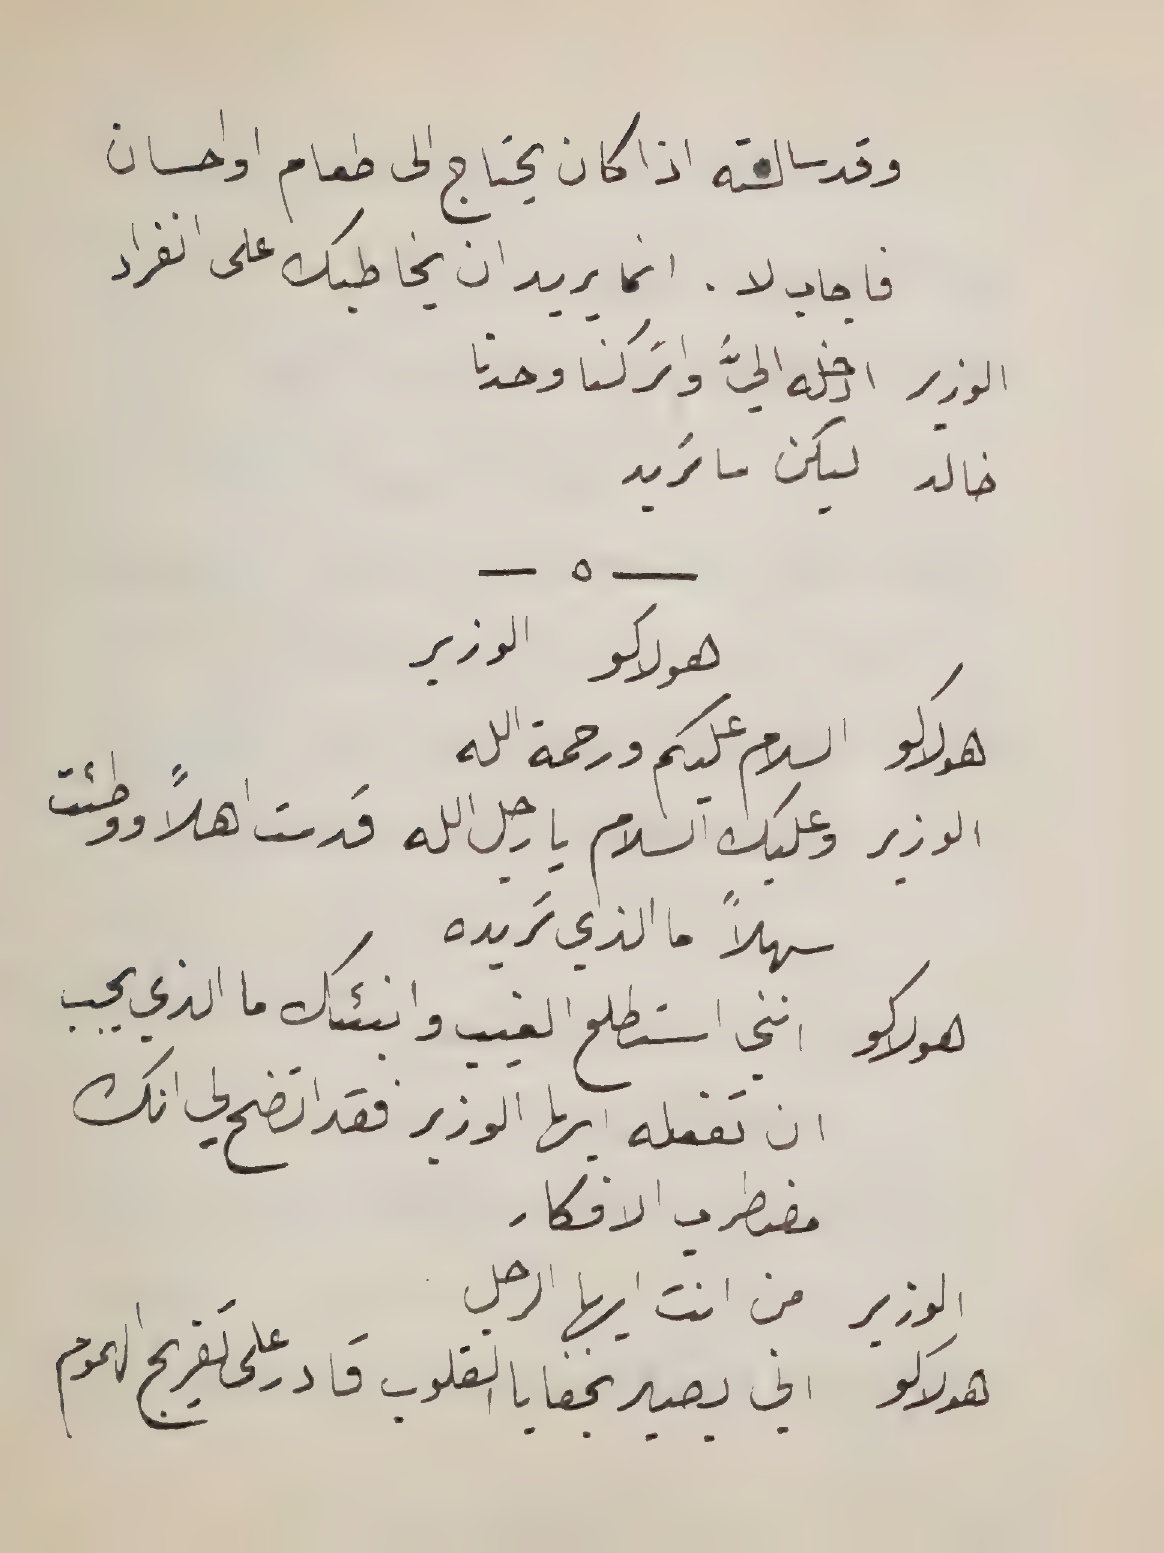 وقد سالته اذا كان يحتاج الى طعام او احسان
فاجاب لا . انما يريد ان يخاطبك على انفراد
الوزير ادخله اليَّ واتركنا وحدنا
خالد ليكن ما تريد
— ٥ —
هولاكو الوزير
هولاكو السلام عليكم ورحمة الله
الوزير وعليك السلام يا رجل الله قدمت اهلاً ووطئت
سهلاً ما الذي تريده
هولاكو انني استطلع الغيب وانبئك ما الذي يجب
ان تفعله ايها الوزير فقد اتضح لي انك
مضطرب الافكار
الوزير من انت ايها الرجل
هولاكو اني بصير بخفايا القلوب قادر على تفريج الهموم